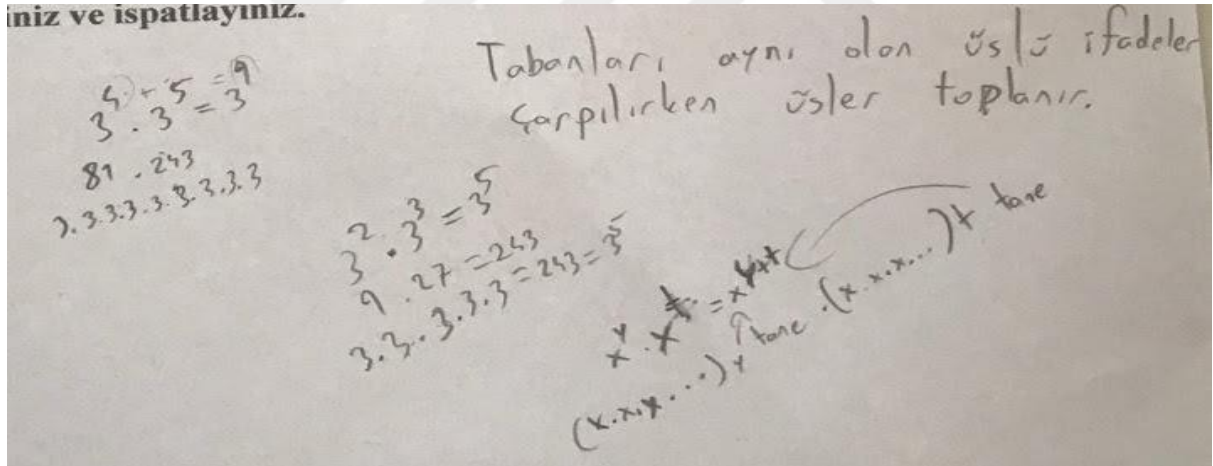 iniz ve ispatlayınız.
Tabanları aynı olan üslü ifadeler
çarpılırken üsler toplanır.
3⁴ · 3⁵ = 3⁹
81 . 243
3.3.3.3.3.3.3.3
3² · 3³ = 3⁵
9 . 27 = 243
3.3.3.3.3 = 243 = 3⁵
x^y . x^t = x^(y+t)
(x.x.x...) y tane . (x.x.x...) t tane